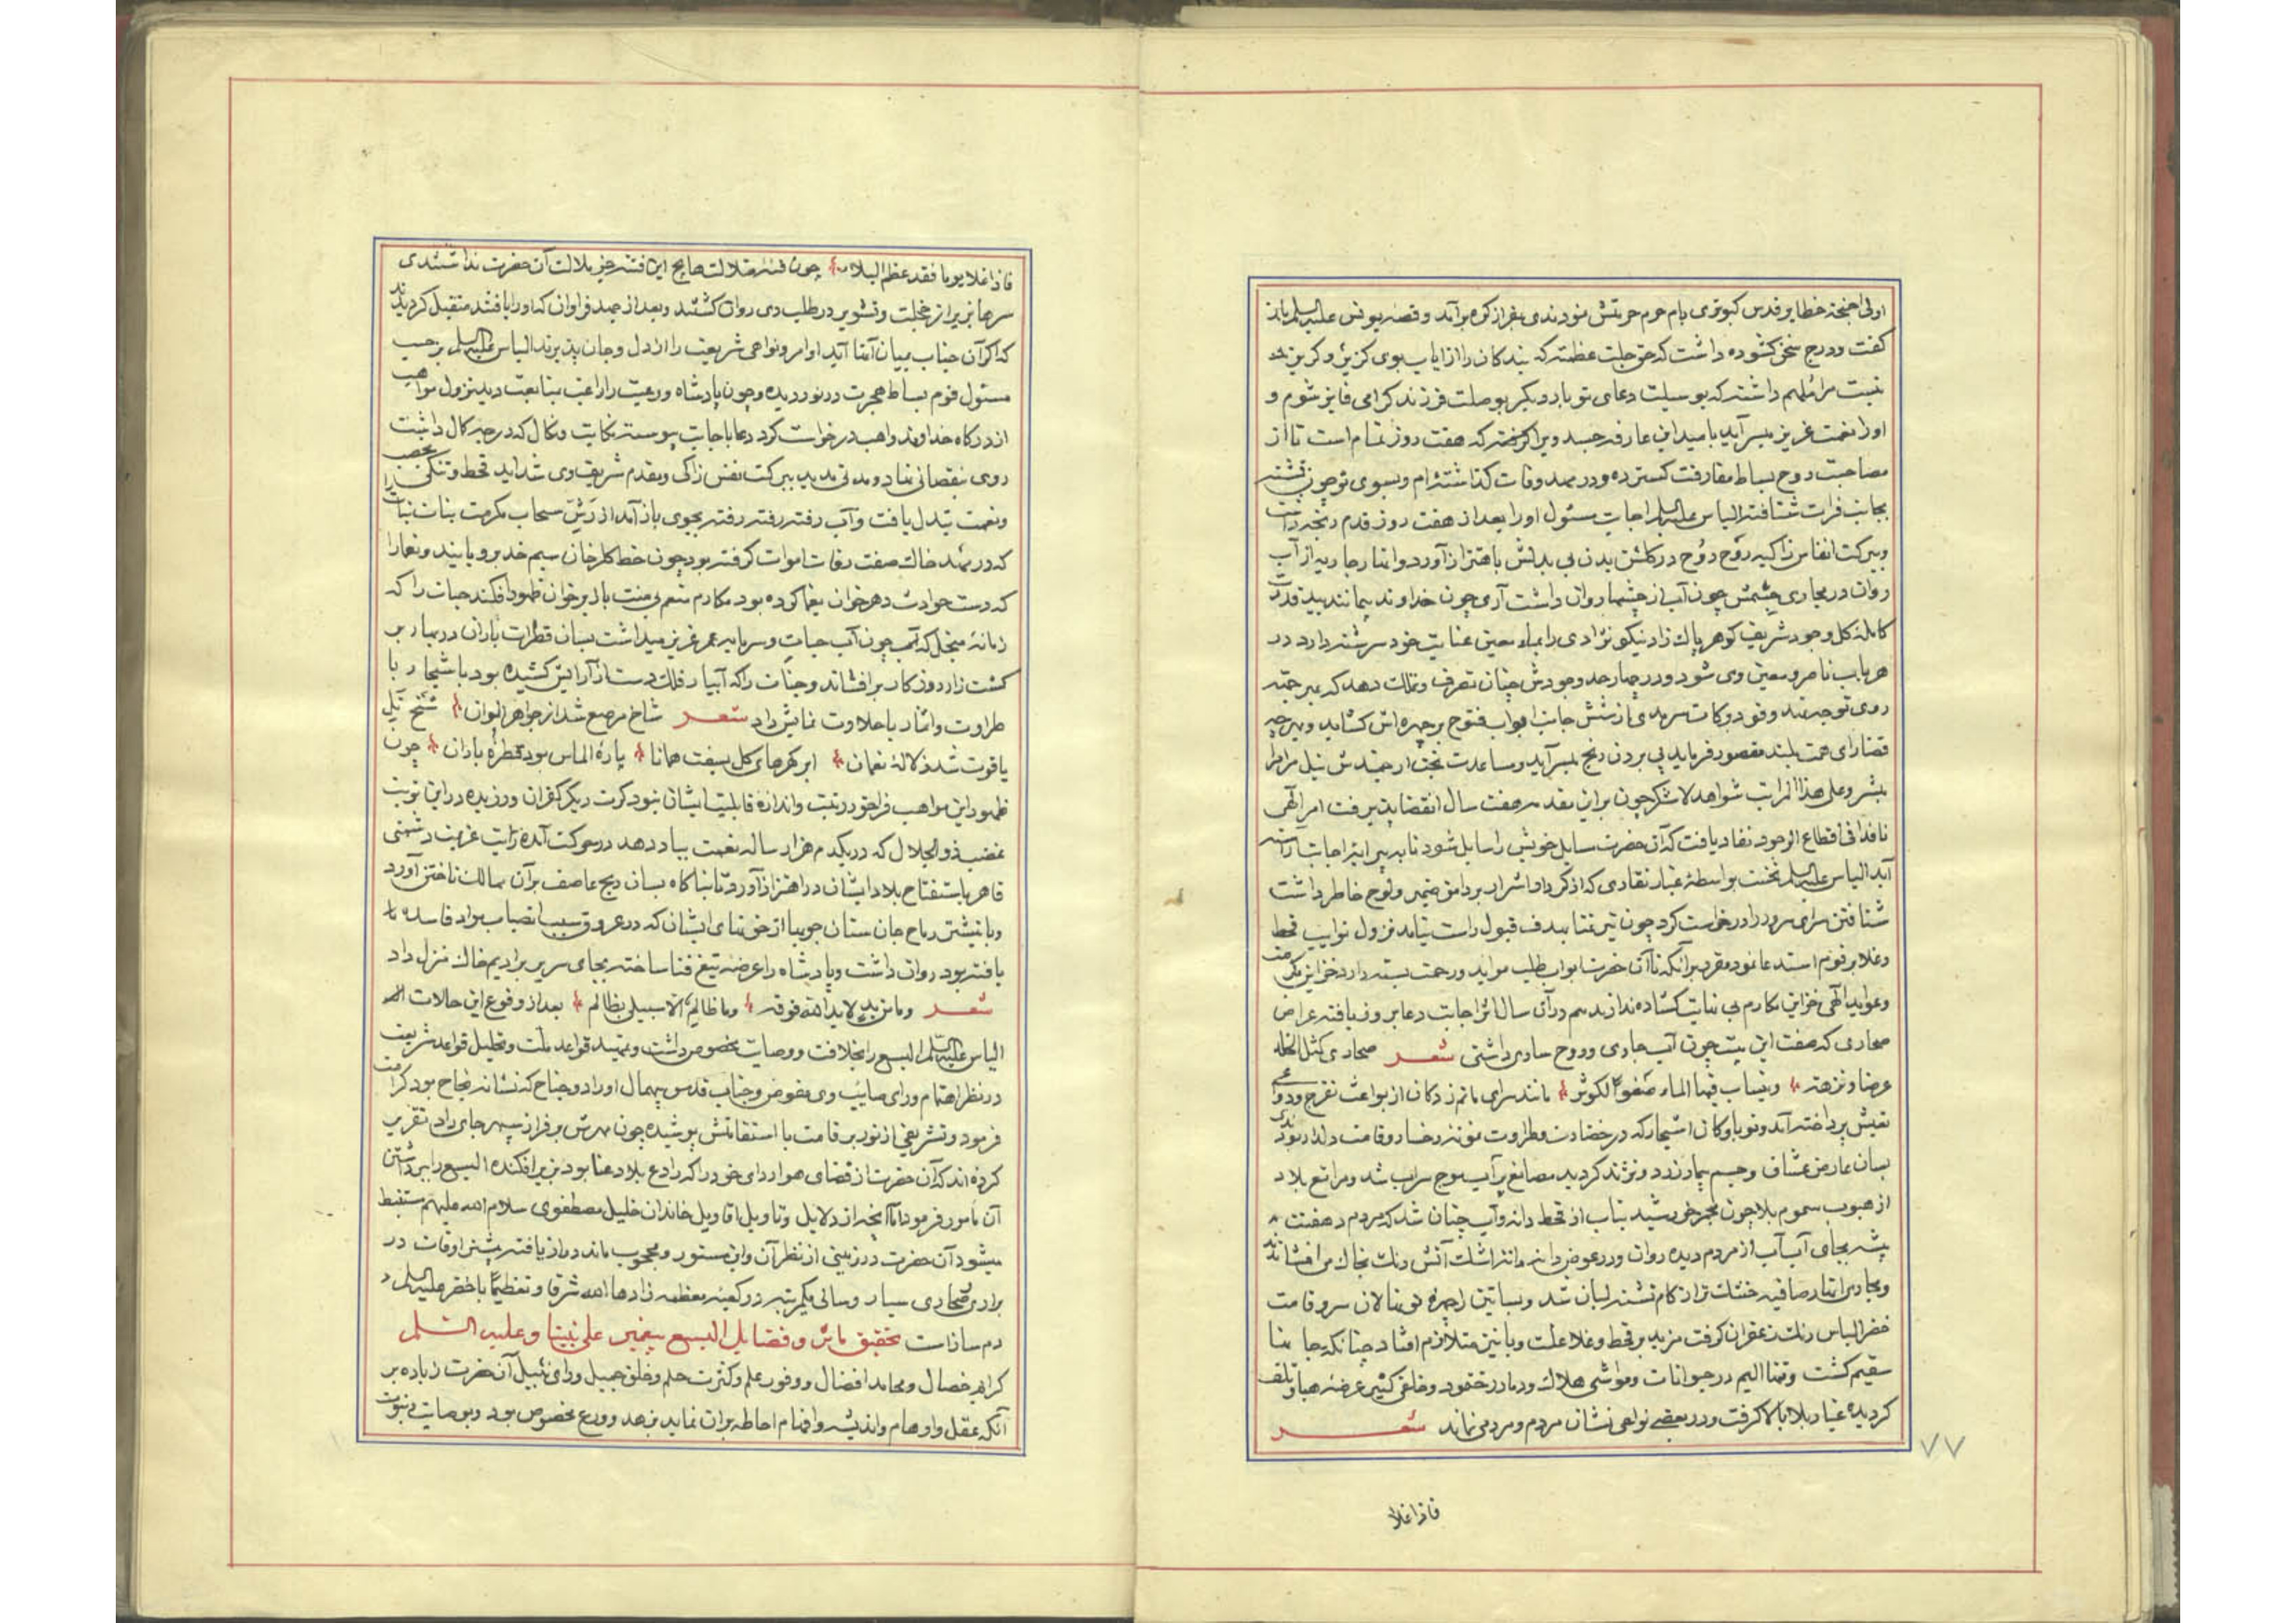 اولی اجنحة خطایر قدس کبوتری بام حرم حرمتش نمودندی بفراز کوه برآمد و قصه یونس علیه السلم باز
کفت ودرج سخن کشوده داشت که حق جلت عظمته که بندکان را از ایاب بوی کزیر و کریز
نیست مرا ملهم داشته که بوسیلت دعای تو بار دیکر بوصلت فرزند کرامی فایز شوم و
اورا نعمت عزیز میسر آید بامید این عارفه جسد ویرا که هفت روز تمام است تا از
مصاحبت روح بساط مفارقت کسترده ودر مهد وفات کذاشته ام وبسوی تو چون تشنه
بجانب فرات شتافته الیاس علیه السلم اجابت مسئول اورا بعد از هفت روز قدم رنجه داشت
وببرکت انفاس زاکیه رَوح رُوح در کلشن بدن بی بدلش باهتزاز آورد وانهار جاریه از آب
روان در مجاری چشمش چون آب از چشمها روان داشت آری چون خداوند بیمانند بید قدرت
کامله کل وجود شریف کوهر پاک زاد نیکو نژادی را بماء معین عنایت خود سرشته دارد در
هر باب ناصر و معین وی شود ودر چهار حد وجودش چنان تصرف و تملک دهد که بهر جهة
روی توجه نهد وفود برکات سرمدی از شش جانب ابواب فتوح بر چهره اش کشاید وبهر چه
قضا رای همت بلند مقصور فرماید بی بردن رنج میسر آید ومساعدت بخت ارجمندش نیل مرام را
مبشر وعلی هذا المراتب شواهد لا تنکر چون براین مقدمه هفت سال انقضا پذیرفت امر الهی
نافذا فی اقطاع الوجود نفاد یافت که آن حضرت سایل خویش را سایل شود تا به پیرایه اجابت آراسته
آید الیاس علیه السلم نخست بواسطهٔ غبار نقاری که از کردار اشرار بر دامن ضمیر ولوح خاطر داشت
شتافتن سرای سرور را درخواست کرد چون تیر تمنا بهدف قبول راست نیامد نزول نوایب قحط
وغلا بر قوم استدعا نمود مقرر برآنکه تا آن حضرت ابواب طلب مواید ورحمت بسته دارد خزاین مکرمت
وعواید الهی خزاین مکارم بی نهایت کشاده ندارند هم درآن سال اثر اجابت دعا بروز یافته عراص
صحاری که صفت این بیت چون آب جاری وروح ساری داشتی شعر صحاری کثل الخلد
عرضا ونزهة وینساب فیها الماء صَفوًا لکوثر مانند سرای ماتم زدکان از بواعث تفرج ودواعی
تعیش پرداخته آمد ونوباوکان اشجار که در خضارت وطراوت نمونه رخسار وقامت دلدار بودند
بسان عارض عشاف وجسم بیمار زرد ونژند کردید مصانع پر آب موج سراب شد ومراتع بلاد
از هبوب سموم بلا چون مجمر خورشید بتاب از قحط دانه وآب چنان شد که مردم دهقنت
پیشه بجای آب آب از مردم دیده روان ودر عوض دانه دانهٔ اشک آتش رنک بخاک می افشاندند
ومجاری انهار صافیه خشک تر از کام تشنه لبان شد وبساتین را چهره نونهالان سرو قامت
خضر الباس رنک زعفران کرفت مزید بر قحط وغلا علت وبا نیز متلازم افتاد چنانکه جانها
سقیم کشت وتنها الیم در حیوانات ومواشی هلاک ودمار در خفود وخلقی کثیر عرضه هبا وتلف
کردیده غبار بلا بالا کرفت ودر بعضی نواحی نشان مردم ومردمی نماند شعر
فاذا غلا
٧٧
فاذا غلا یوما فقد عظم البلا چون فتنه ضلالت هایج این فتنه جز بلالت آن حضرت نداشتندی
سرها بزیر از خجلت وتشویر در طلب وی روان کشتند وبعد از جهد فراوان که اورا یافتند متقبل کردیدند
که اکر آن جناب بمیان آنها آید اوامر ونواهی شریعت را از دل وجان پذیرند الیاس علیه السلم برحسب
مسئول قوم بساط هجرت در نوردیده وچون پادشاه ورعیت را راغب متابعت دید نزول مواهب
از درکاه خداوند واهب درخواست کرد دعا باجابت پیوسته نکایت ونکال که درجه کمال داشت
روی بنقصانی نهاد ومدتی مدید ببرکت نفس زاکی ومقدم شریف وی شداید قحط وتنکی بخصب
ونعمت تبدل یافت وآب رفته رفته رفته بجوی باز آمد از رَشّ سحاب مکرمت بنات نبات
که در مهد خاک صفت رفات اموات کرفته بود چون خط کلرخان سیم خد بروبایند ونعما را
که دست حوادث دهر خوان یغما کرده بود مکارم منعم بی منت باز برخوان ظهور افکند حیات را که
زمانهٔ منجل که آب چون آب حیات وسرمایه عمر عزیز میداشت بسان قطرات باران در بهار بر
کشت زار روزکار برافشاند وجنات را که آبیار فلک دست از آرایش کشیده بود باشجار با
طراوت واثمار باحلاوت نمایش داد شعر شاخ مرصع شد از جواهر الوان شخ تل
یاقوت شد ز لالهٔ نعمان ابر کهرهای کل بسفت همانا پارهٔ الماس بود قطرهٔ باران چون
ظهور این مواهب فراخور رتبت واندازه قابلیت ایشان نبود کرت دیکر کفران ورزیده در این نوبت
غضب ذو الجلال که در یکدم هزار ساله نعمت بباد دهد در حرکت آمده رایت عزیمت دشمنی
قاهر باستفتاح بلاد ایشان در اهتزاز آورد تا بناکاه بسان ریح عاصف برآن ممالک تاختن آورد
وبا نیشتر رماح جان ستان جویها از خون های ایشان که در عروق سبب انصباب مواد فاسده تاه
یافته بود روان داشت وپادشاه را عرضه تیغ فنا ساخته بجای سریر بر ادیم خاک منزل داد
شعر وما من ید الا ید الله فوقه وما ظالم الا سیبلی بظالم بعد از وقوع این حالات
الیاس علیه السلم الیسع را بخلافت ووصایت مخصوص داشت وتمهید قواعد ملت وتحلیل قواعد شریعت
در نظر اهتمام ورای صایب وی مفوض وجناب قدس بیهمال اورا دو جناح که نشانه نجاح بود کرامت
فرمود وتشریفی از نور بر قامت با استقامتش پوشیده چون مهرش بر فراز سپهر جای داد تقریر
کرده اند که آن حضرت از فضای هوا ردای خود را که رادع بلا وعنا بود بزیر افکنده الیسع را ببرداشتن
آن مامور فرمود اما آنچه از دلایل وتاویل اقاویل خاندان خلیل مصطفوی سلام الله علیهم مستنبط
میشود آن حضرت در زمینی از نظر آن واین مستور ومحجوب مانده راز یافته بیشتر اوقات در
براری صحاری سیار وسالی یکمرتبه در کعبه معظمه زادها الله شرفا وتعظیمًا با خضر علیه السلم
دم ساز است تحقیق مآثر وفضایل الیسع پیغمبر علی نبینا وعلیه السلم
کرایم خصال ومحامد افضال ووفور علم وکثرت حلم وخلق جمیل ورای نبیل آن حضرت زیاده بر
آنکه عقل واوهام واندیشه وافهام احاطه برآن نماید بزهد وورع مخصوص بود وبوصایت ونبوت